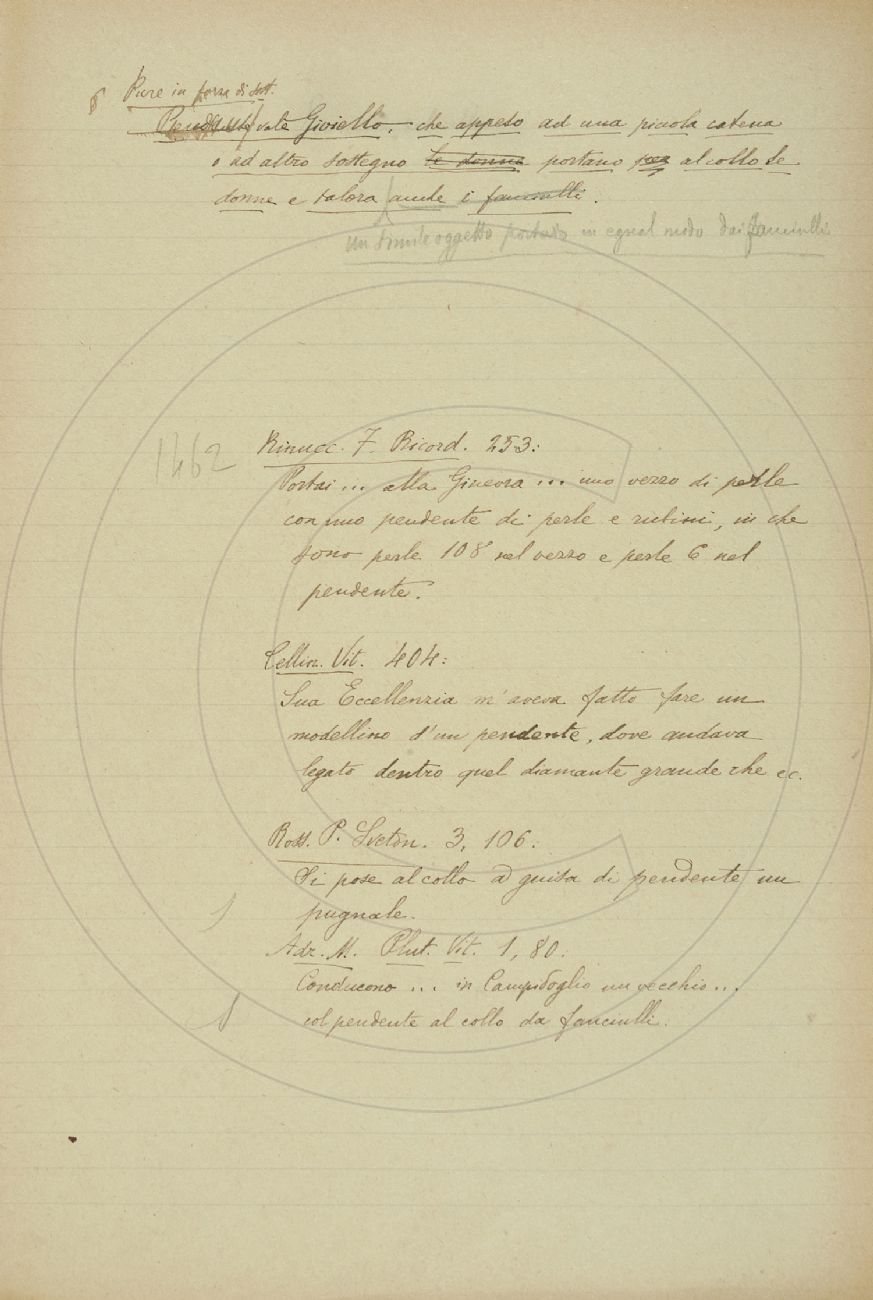 § Pure in forza di sost.
vale Gioiello, che appeso ad una piccola catena
o ad altro sostegno le donne portano per al collo le
donne e talora anche i fanciulli.
un simile oggetto portato in egual modo dai fanciulli
1462
Rinucc. F. Ricord. 253:
Portai ... alla Ginevra ... uno vezzo di perle
con uno pendente di perle e rubini, in che
sono perle 108 nel vezzo e perle 6 nel
pendente.
Cellin. Vit. 404:
Sua Eccellenzia m'aveva fatto fare un
modellino d'un pendente, dove andava
legato dentro quel diamante grande che ec.
Ross. P. Sveton. 3, 106:
Si pose al collo a guisa di pendente un
pugnale.
Adr. M. Plut. Vit. 1, 80:
Conducono ... in Campidoglio un vecchio ...
col pendente al collo da fanciulli.